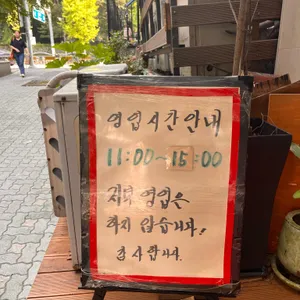 영업시간안내
11:00~15:00
저녁 영업은
하지 않습니다!
감사합니다.